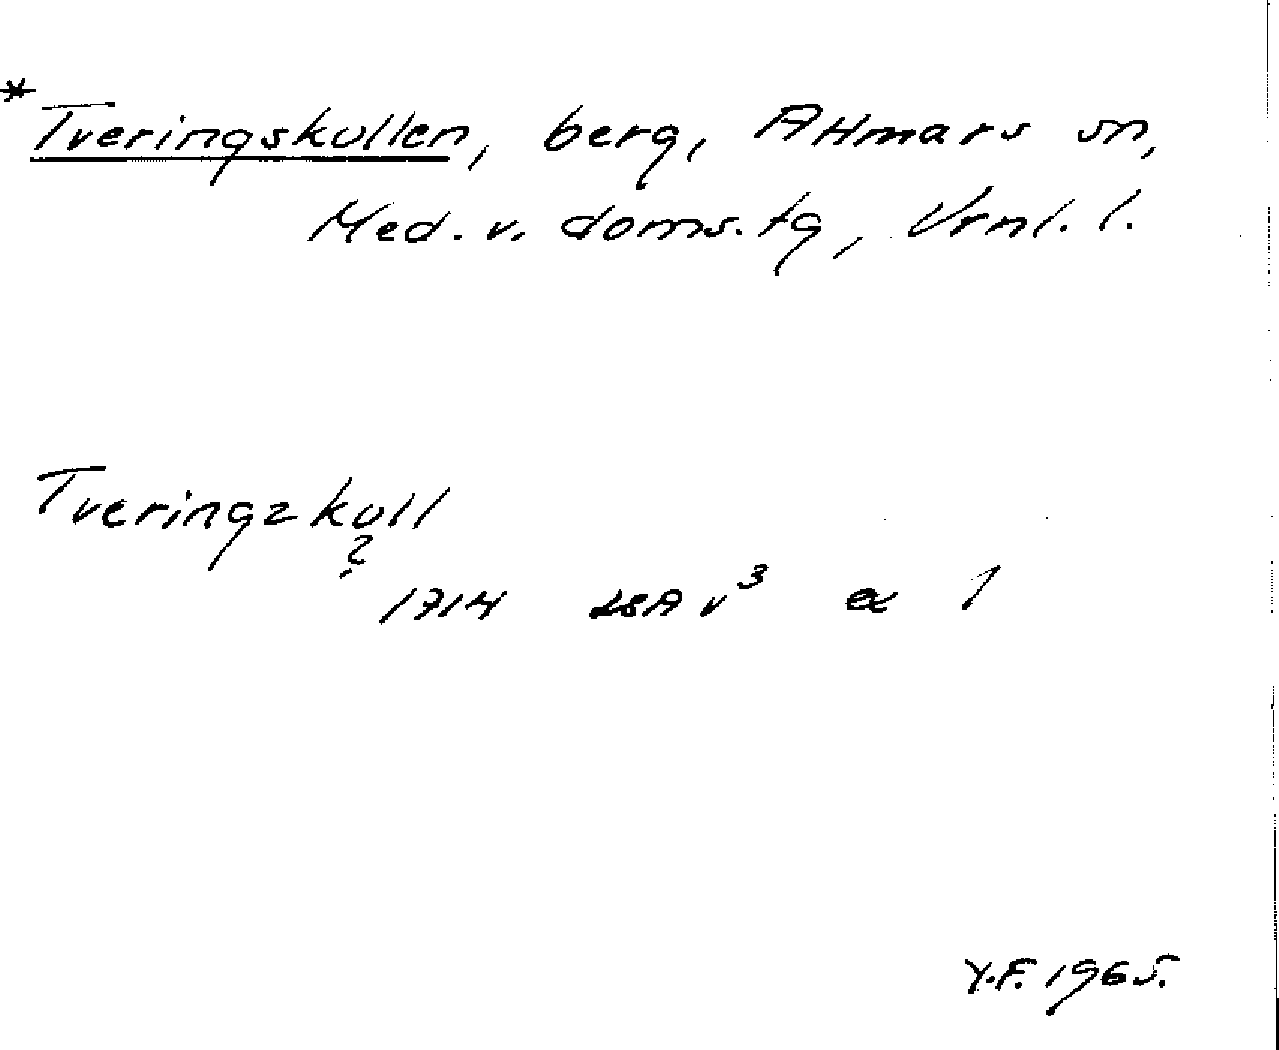 *Tveringskullen, berg, Attmars sn,
Med. v. doms. tg, Vrnl. l.
Tveringzkoll
?
1714 LSA v³ α 1
Y.F. 1965.